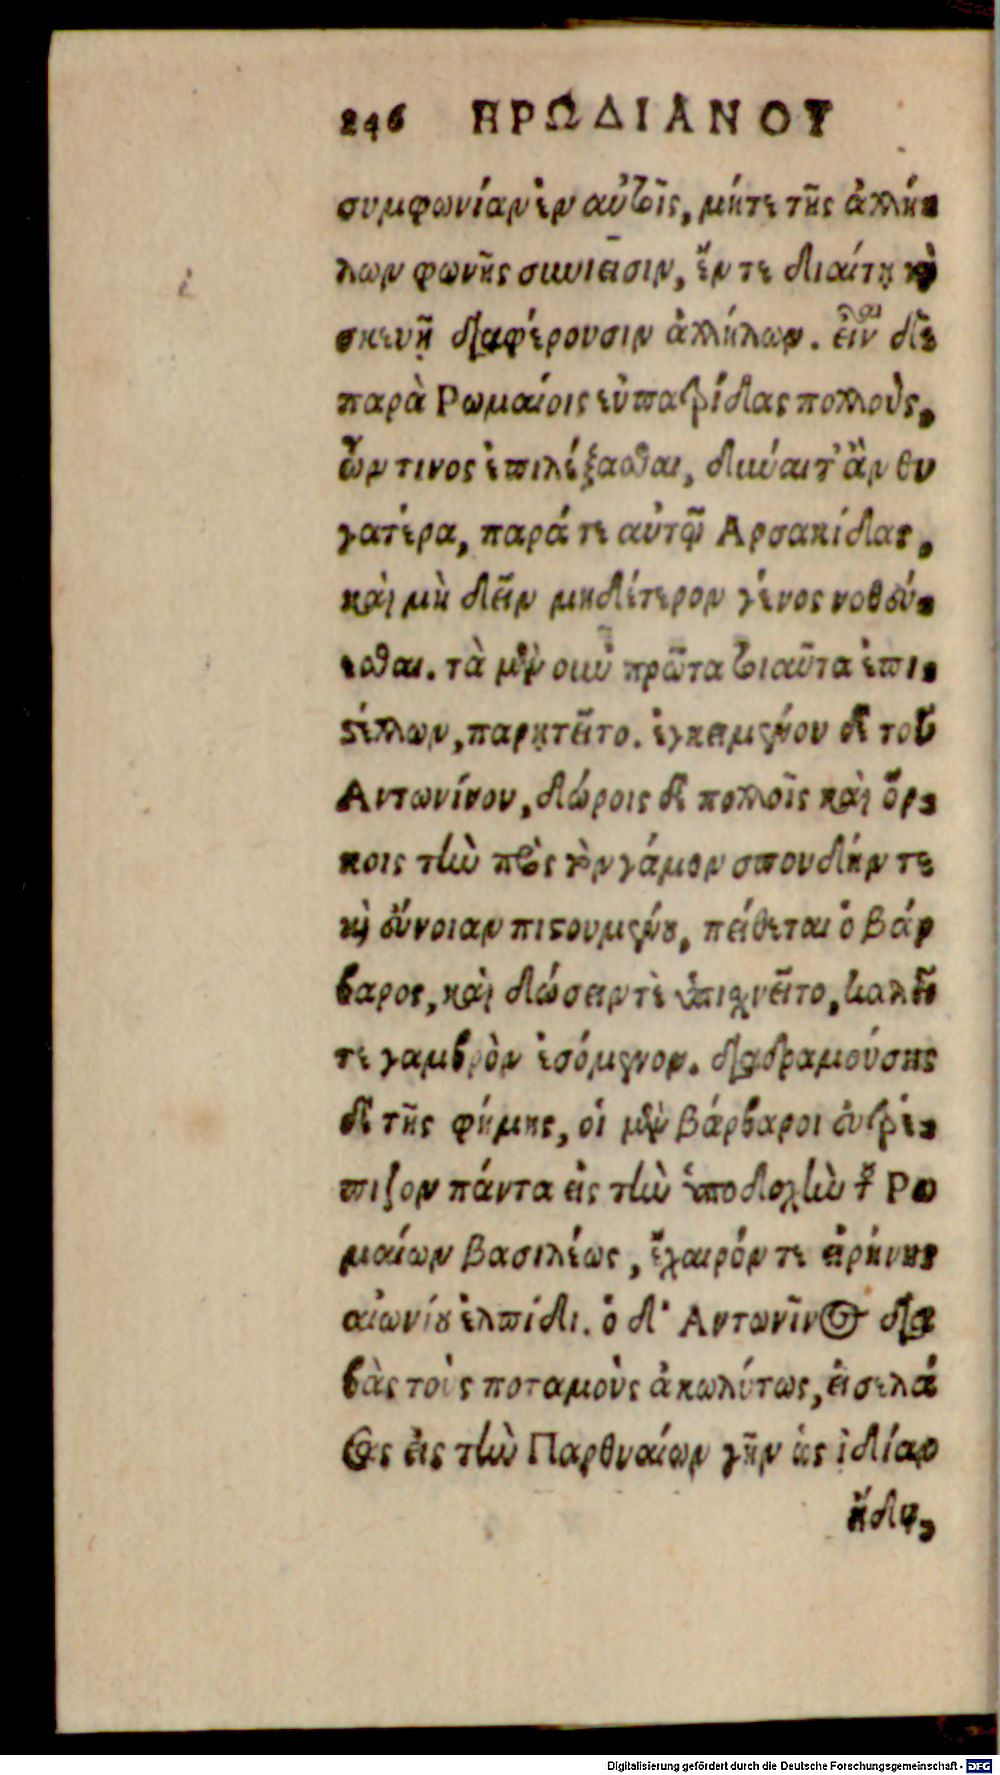 246 ΗΡΩΔΙΑΝΟΥ
συμφωνίαν ἐν αὐτοῖς, μήτε τῆς ἀλλή-
λων φωνῆς συνιᾶσιν, ἔν τε διαίτῃ καὶ
σκευῇ διαφέρουσιν ἀλλήλων. εἶναι δὲ
παρὰ Ρωμαίοις εὐπατρίδας πολλοὺς,
ὧν τινος ἐπιλέξασθαι, δύναιτ' ἂν θυ
γατέρα, παρά τε αὐτῷ Αρσακίδας,
καὶ μὴ δεῖν μηδέτερον γένος νοθεύ-
εσθαι. τὰ μὲν οὖν πρῶτα τοιαῦτα ἐπι-
στέλλων, παρῃτεῖτο. ἐγκειμένου δὲ τοῦ
Αντωνίνου, δώροις δὲ πολλοῖς καὶ ὅρ-
κοις τὴν πρὸς τὸν γάμον σπουδήν τε
καὶ εὔνοιαν πιστουμένου, πείθεται ὁ βάρ
βαρος, καὶ δώσειν τὲ ὑπισχνεῖτο, καλεῖ
τε γαμβρὸν ἐσόμενον. διαδραμούσης
δὲ τῆς φήμης, οἱ μὲν βάρβαροι εὐτρέ-
πιζον πάντα εἰς τὴν ὑποδοχὴν τοῦ Ρω
μαίων βασιλέως, ἔχαιρόν τε εἰρήνης
αἰωνίου ἐλπίδι. ὁ δ' Αντωνῖνος δια
βὰς τοὺς ποταμοὺς ἀκωλύτως, εἰσελά
σας εἰς τὴν Παρθυαίων γῆν ὡς ἰδίαν
ἤδη,
Digitalisierung gefördert durch die Deutsche Forschungsgemeinschaft - DFG